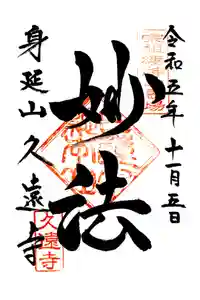 令和五年 十一月五日
妙法
身延山久遠寺
久遠寺